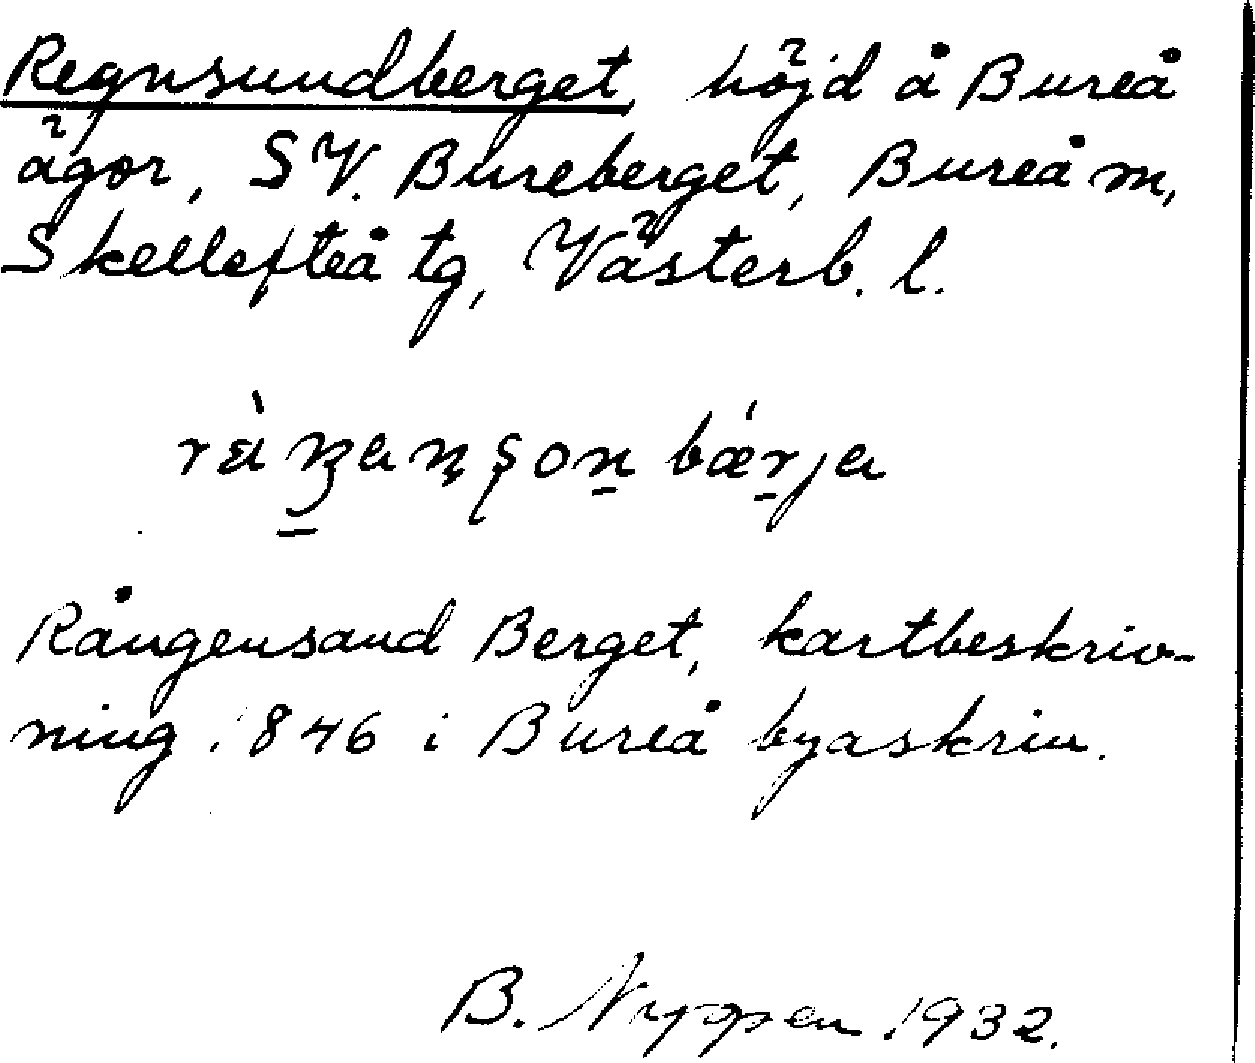 Regnsundberget, höjd å Bureå
ägor, SV. Bureberget, Bureå m,
Skellefteå tg, Västerb. l.
Rångensand Berget, kartbeskriv-
ning 1846 i Bureå byaskrin.
B. Nyqsen 1932.